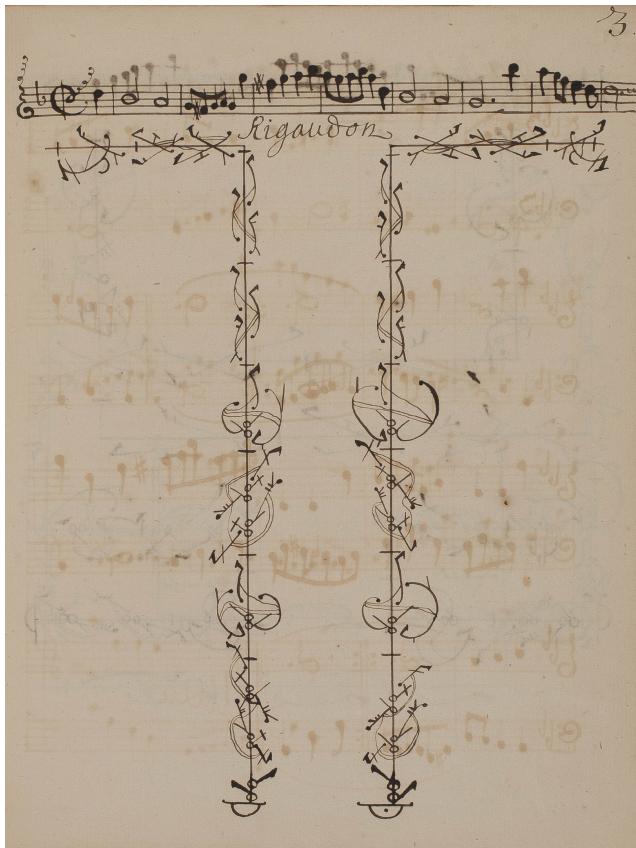 3.
Rigaudon